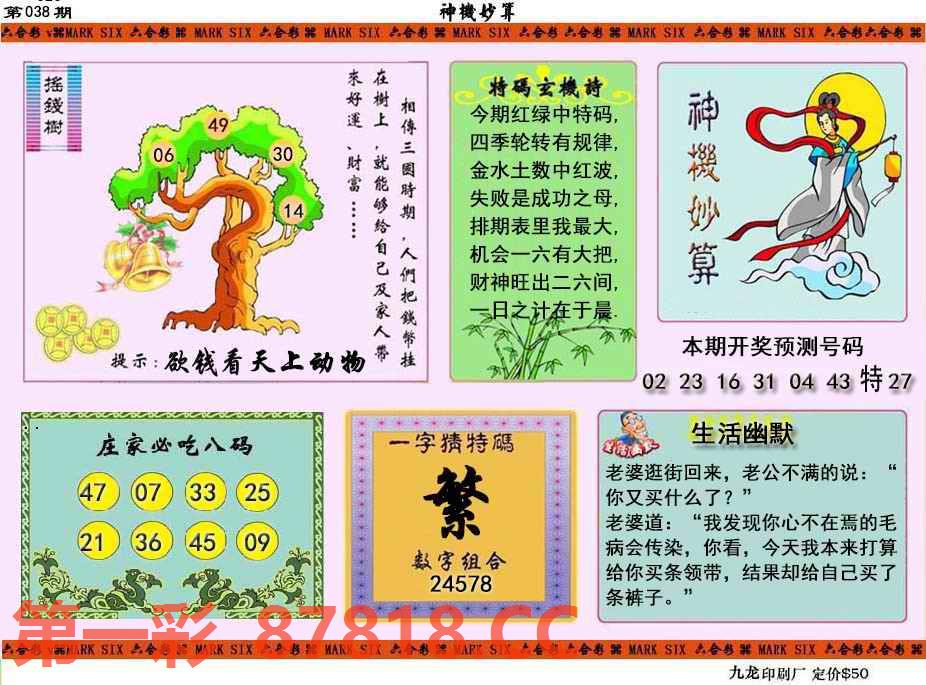 第038期
神機妙算
六合彩 MARK SIX 六合彩 MARK SIX 六合彩 MARK SIX 六合彩 MARK SIX 六合彩 MARK SIX 六合彩 MARK SIX 六合彩 MARK SIX 六合彩
搖錢樹
相傳三國時期，人們把錢幣挂
在樹上，就能够給自己及家人帶
來好運、財富……
49
06
30
14
提示：欲钱看天上动物
特碼玄機詩
今期红绿中特码，
四季轮转有规律，
金水土数中红波，
失败是成功之母，
排期表里我最大，
机会一六有大把，
财神旺出二六间，
一日之计在于晨.
神機妙算
本期开奖预测号码
02 23 16 31 04 43 特 27
庄家必吃八码
47 07 33 25
21 36 45 09
一字猜特碼
繁
数字组合
24578
生活幽默
生活幽默
老婆逛街回来，老公不满的说：“
你又买什么了？”
老婆道：“我发现你心不在焉的毛
病会传染，你看，今天我本来打算
给你买条领带，结果却给自己买了
条裤子。”
第一彩 87818.CC
六合彩 MARK SIX 六合彩 MARK SIX 六合彩 MARK SIX 六合彩 MARK SIX 六合彩 MARK SIX 六合彩 MARK SIX 六合彩 MARK SIX 六合彩
九龙印刷厂 定价$50